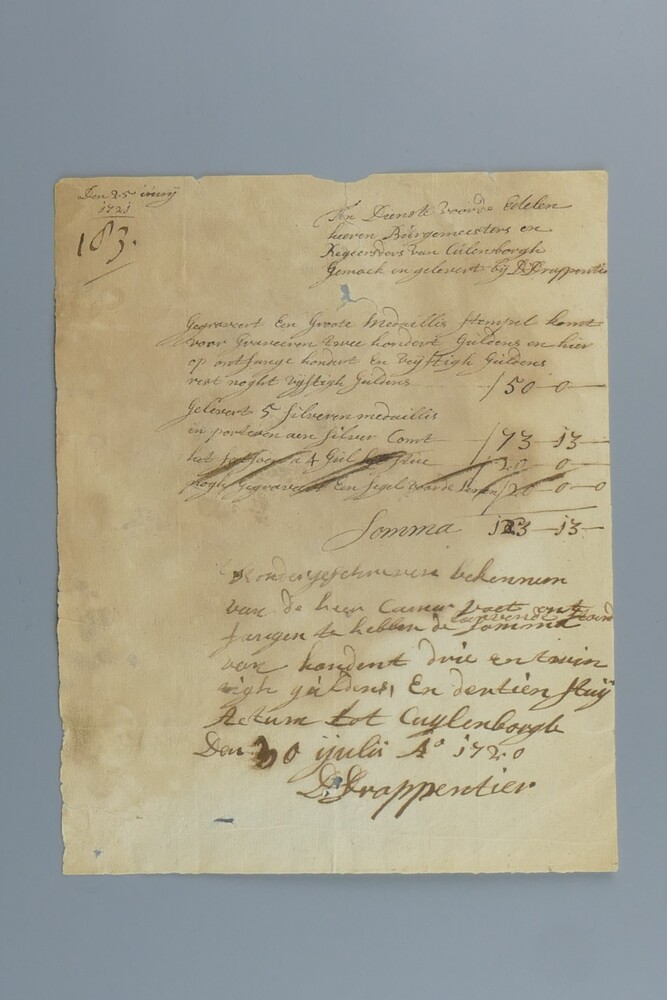 Den 25 iunij
1721
183.
Ten Dienste voorde Edelen
heeren Burgemeesters en
Regeerders van Culenborgh
Gemack en gelevert bij D. Drappentie
Gegraveert Een Groote Medaillis Stempel komt
voor Graveeren twee hondert Guldens en hier
op ontfange hondert En vijftigh Guldens
rest noght vijftigh Guldens 50 0
Gelevert 5 silveren medaillis
in porteren aen silver Comt 73 13
het a 4 Gul 20 0
nogh Gegraveert Een segel voorde 20 0 0
Somma 123 13
ondergeschreven bekennen
van de heer Camer ont
fangen te hebben de somma
van hondert drie en twin
tigh guldens, En dertien stuij
Actum tot Cuylenborgh
Den 30 ijulii Ao 1720
D. Drappentier